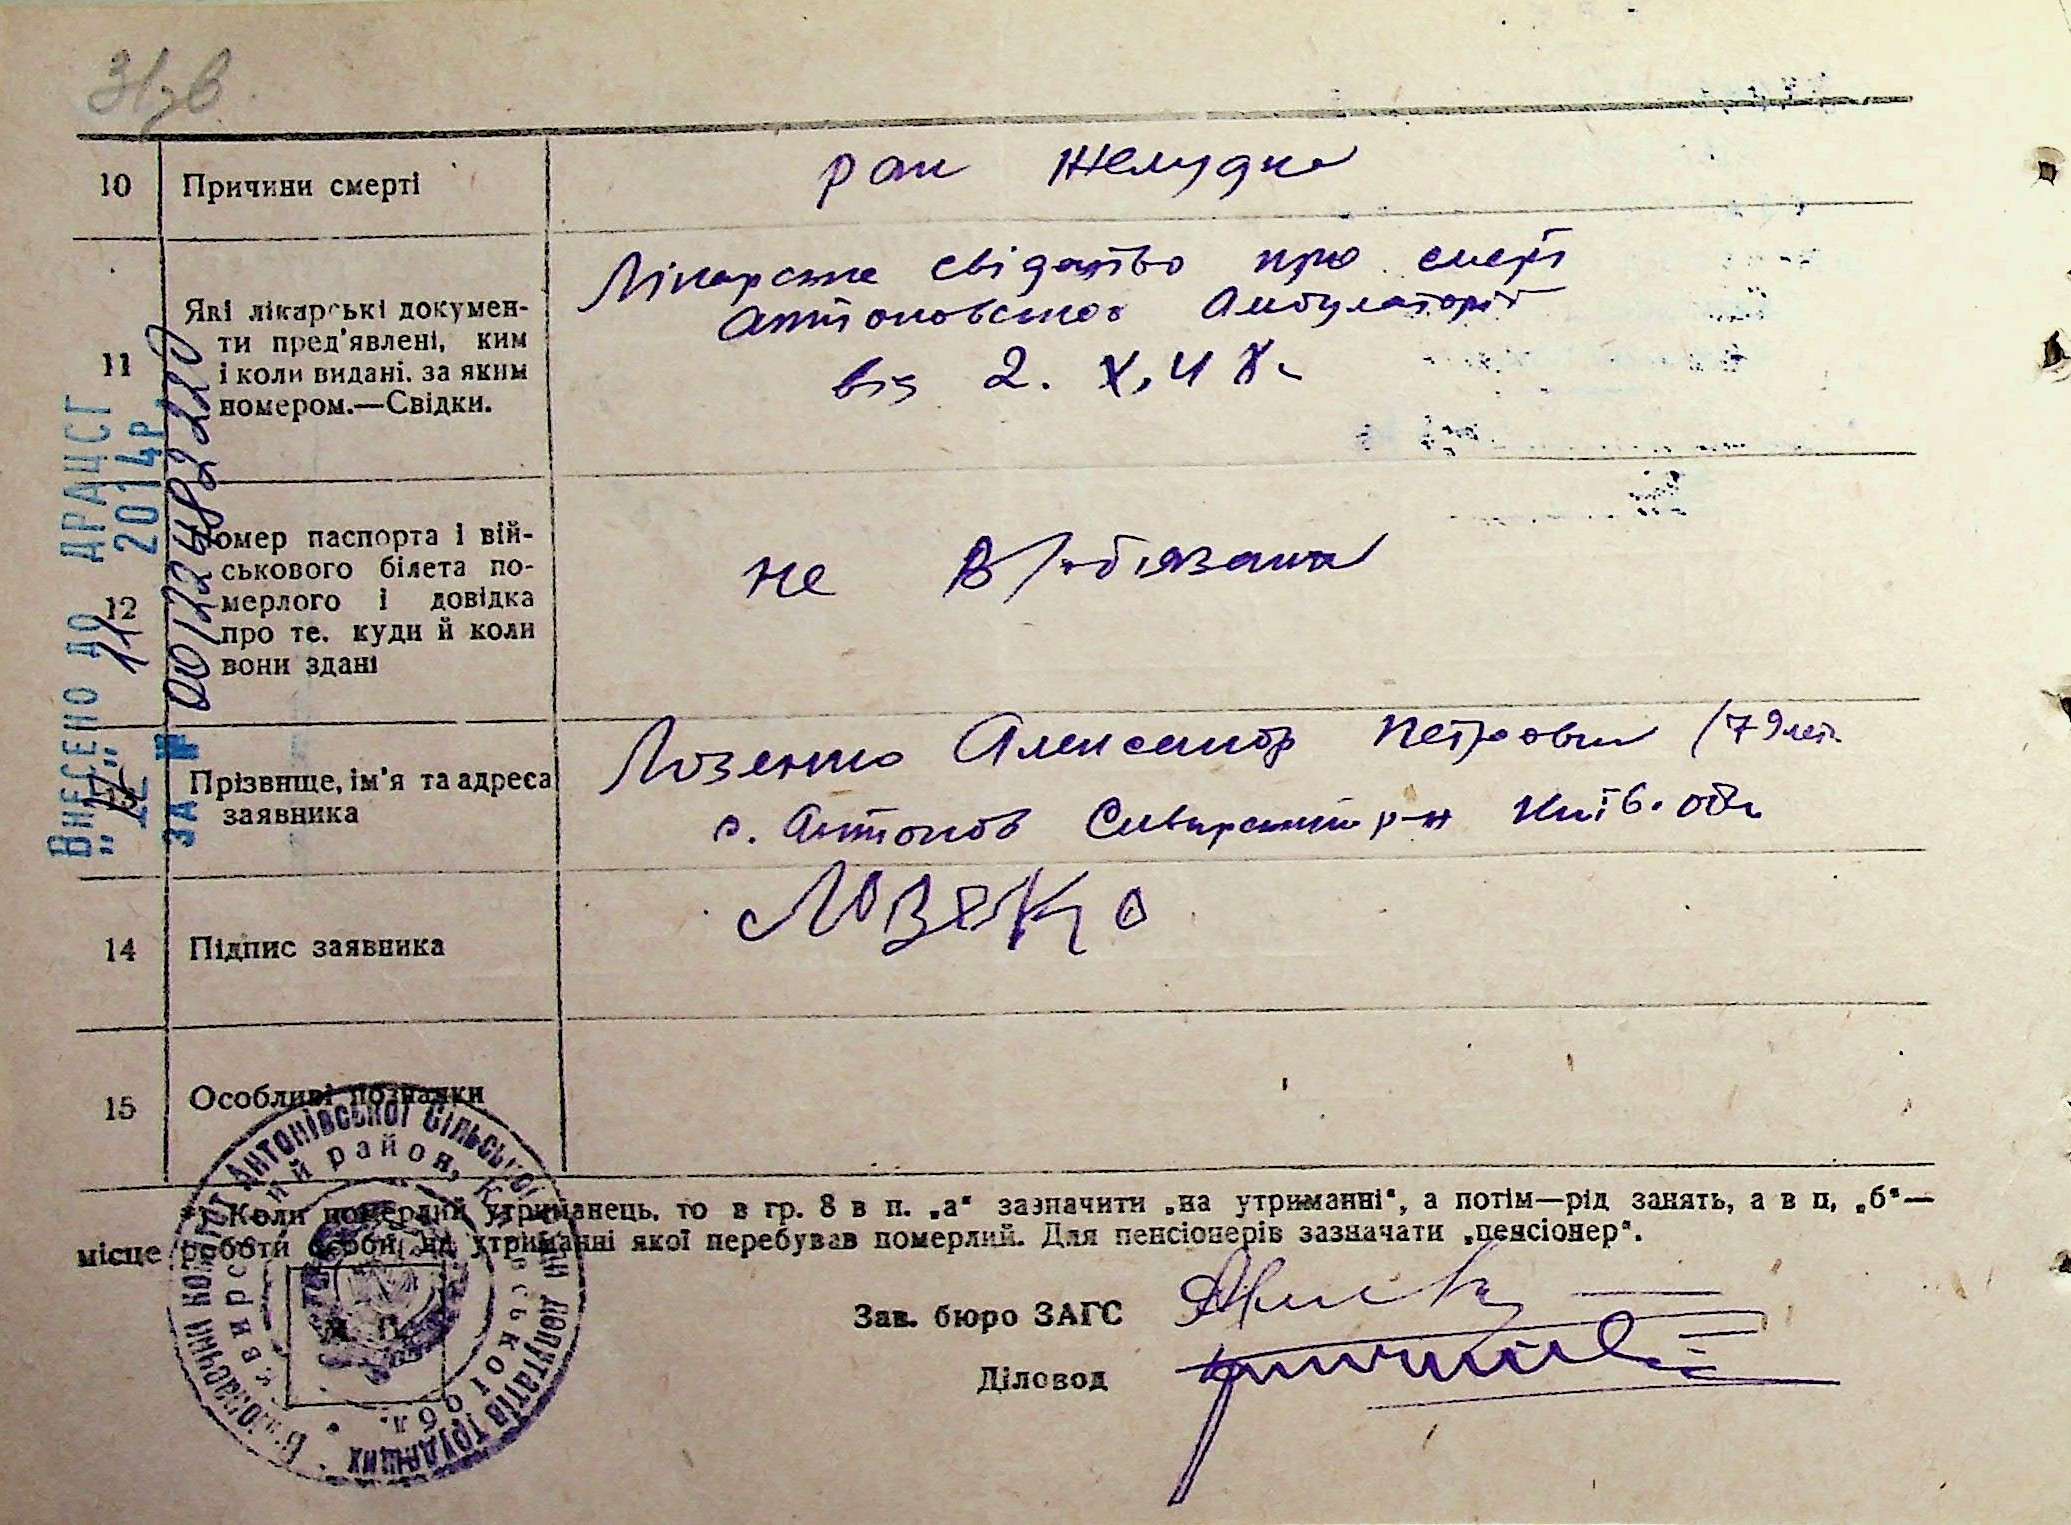 10 Причини смерті рак желудка
11 Які лікарські докумен-
ти пред'явлені, ким
і коли видані, за яким
номером.—Свідки.
Лікарське свідатво про смерті
Антоновсько Амбулаторії
від 2. X, 48.
12 Номер паспорта і вій-
ськового білета по-
мерлого і довідка
про те, куди й коли
вони здані
не в/обіязана
Прізвище, ім'я та адреса
заявника
Лозенко Александр Петрович /79 лет.
с. Антонов Сквирский р-н Київ. обл
14 Підпис заявника
15 Особливі познаки
Внесено до ДРАЦСГ
2014р.
за № 0012482220
*) Коли померлий утриманець, то в гр. 8 в п. „а" зазначити „на утриманні", а потім—рід занять, а в п, „б"—
місце роботи особи, на утриманні якої перебував померлий. Для пенсіонерів зазначати „пенсіонер".
Зав. бюро ЗАГС
Діловод
Виконавчий комітет Антонівської сільської Ради депутатів трудящих
Сквирський район, Київської обл.
М. П.